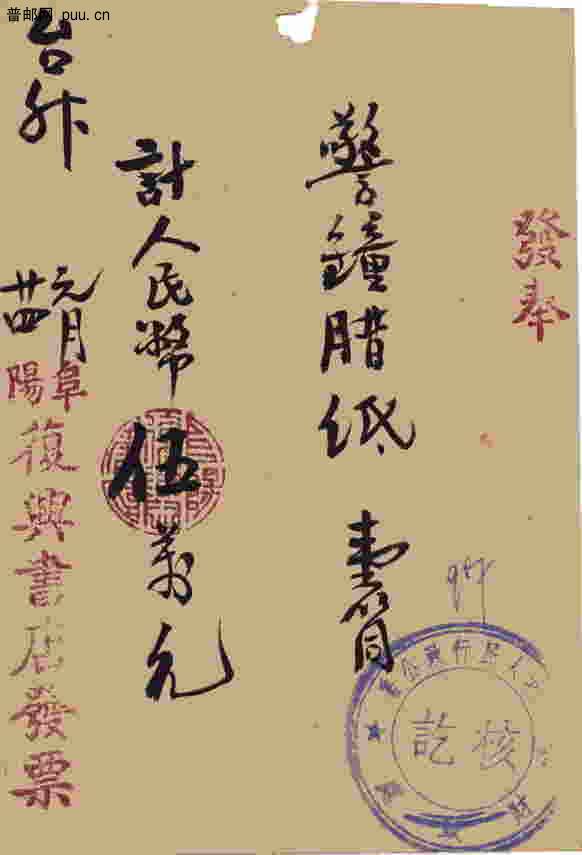 普邮网 puu.cn
發奉
警鐘腊纸 壹筒
計人民幣伍萬元
台升
元月廿四
阜陽復興書店發票
核訖